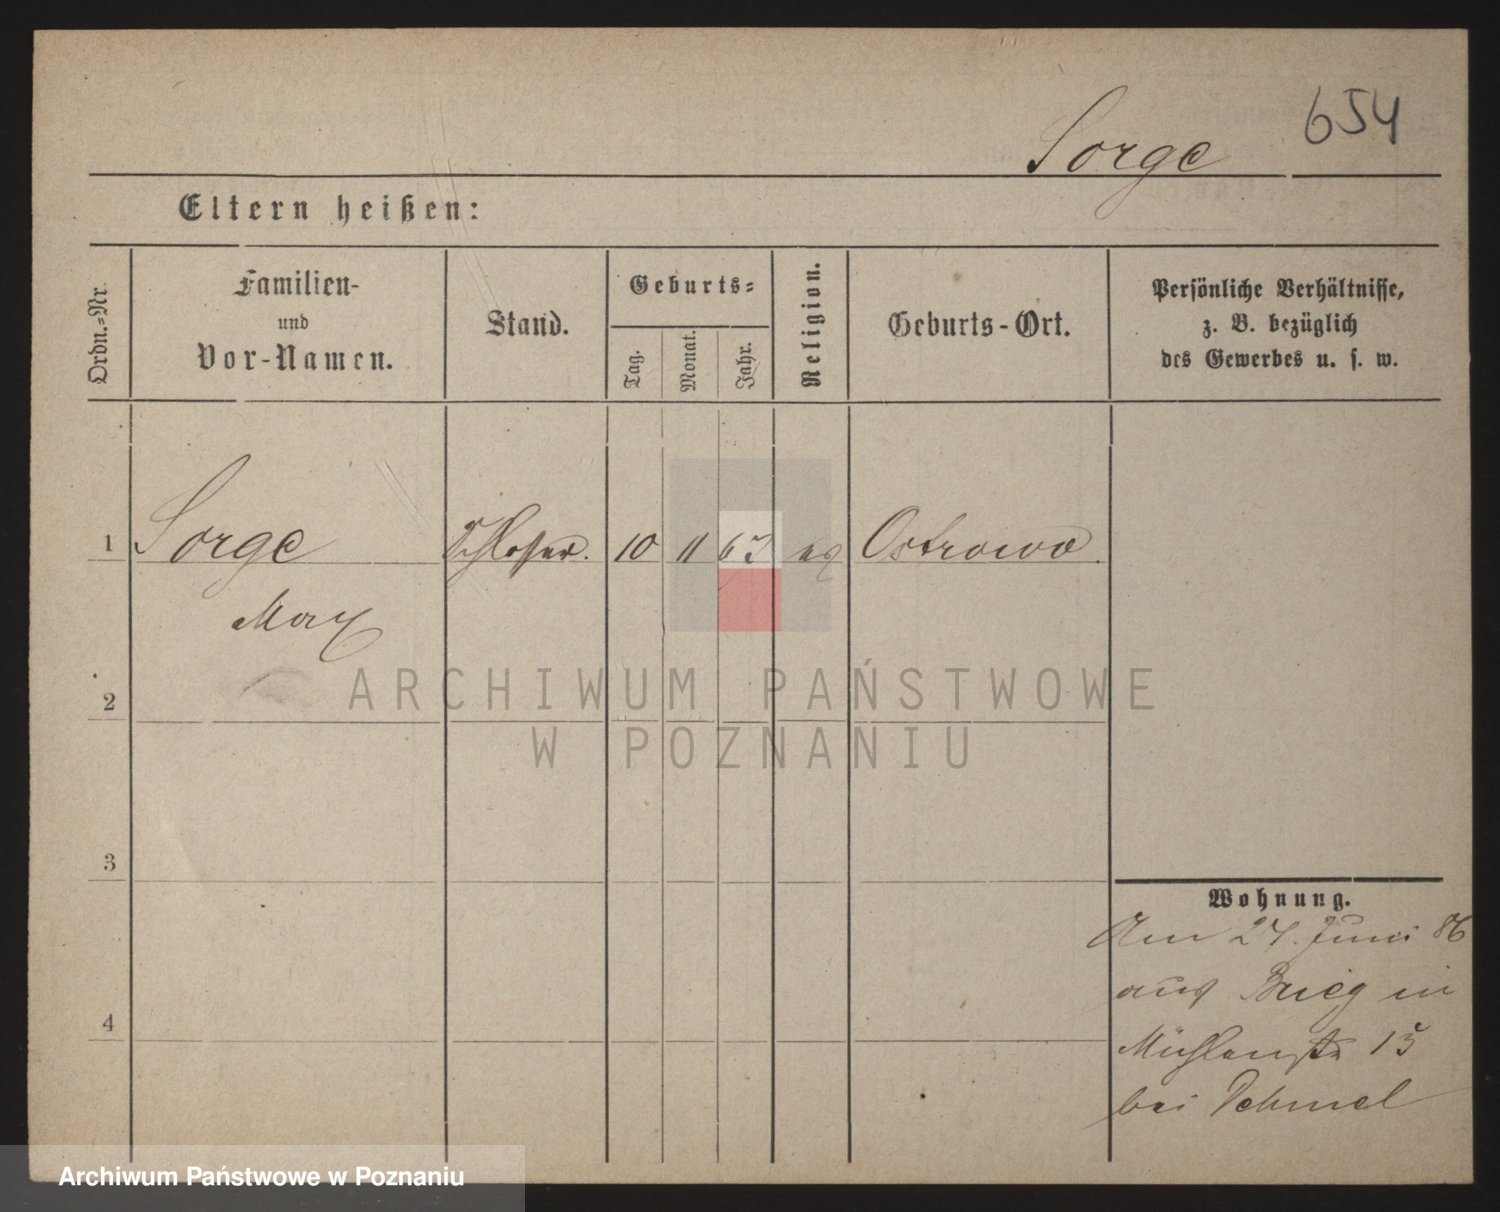 654
Sorge
Eltern heißen:
Ordn.-Nr.
Familien-
und
Vor-Namen.
Stand.
Geburts-
Tag.
Monat.
Jahr.
Religion.
Geburts-Ort.
Persönliche Verhältnisse,
z. B. bezüglich
des Gewerbes u. s. w.
1 Sorge Schlosser. 10 11 63 ev Ostrowo.
Max
2
3
4
Wohnung.
Am 24. Juni 86
aus Brieg in
Mühlenstr 15
bei
ARCHIWUM PAŃSTWOWE
W POZNANIU
Archiwum Państwowe w Poznaniu